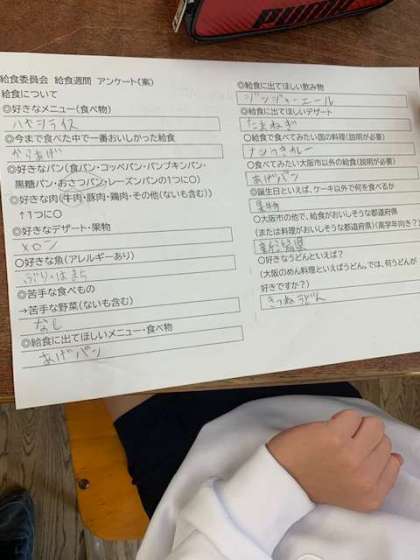 給食委員会 給食週間 アンケート(案)
給食について
◎好きなメニュー(食べ物)
ハヤシライス
◎今まで食べた中で一番おいしかった給食
からあげ
◎好きなパン(食パン・コッペパン・パンプキンパン・
黒糖パン・おさつパン・レーズンパンの1つに○)
◎好きな肉(牛肉・豚肉・鶏肉・その他(ないも含む))
↑1つに○
◎好きなデザート・果物
メロン
○好きな魚(アレルギーあり)
ぶり・はまち
◎苦手な食べもの
→苦手な野菜(ないも含む)
なし
◎給食に出てほしいメニュー・食べ物
あげパン
◎給食に出てほしい飲み物
ジンジャーエール
◎給食に出てほしいデザート
たまねぎ
○給食で食べてみたい国の料理(説明が必要)
カレー
○食べてみたい大阪市以外の給食(説明が必要)
あげパン
◎誕生日といえば、ケーキ以外で何を食べるか
○大阪市の他で、給食がおいしそうな都道府県
(または料理がおいしそうな都道府県)(高学年向き?)
○好きなうどんといえば?
(大阪のめん料理といえばうどん。では、何うどんが
好きですか?)
きつねうどん
PUMA